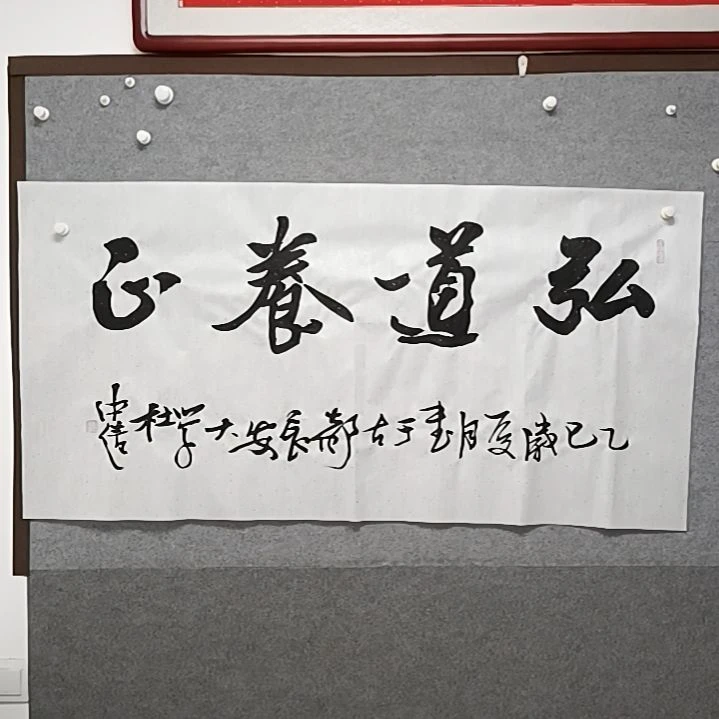 弘道養正
乙巳歲夏月書于古都長安大学杜中信